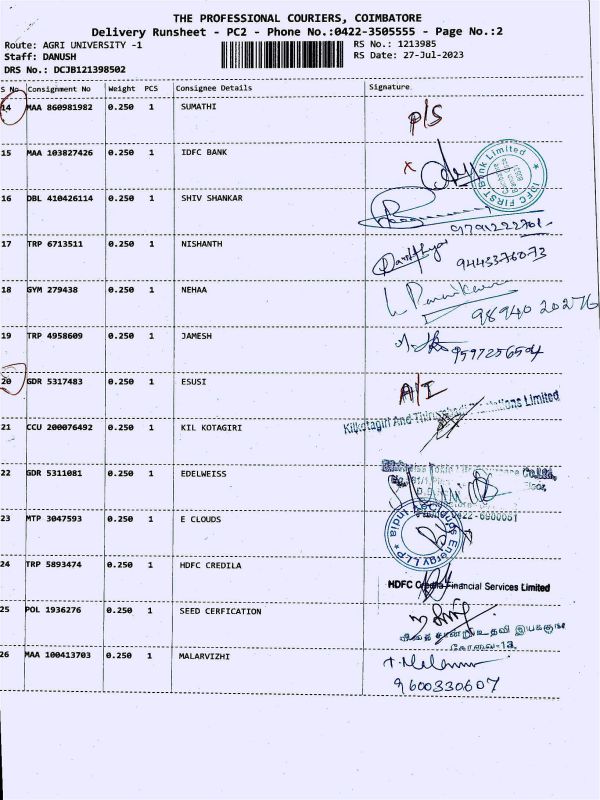 THE PROFESSIONAL COURIERS, COIMBATORE
Delivery Runsheet - PC2 - Phone No.:0422-3505555 - Page No.:2
Route: AGRI UNIVERSITY -1 RS No.: 1213985
Staff: DANUSH RS Date: 27-Jul-2023
DRS No.: DCJB121398502
S No Consignment No Weight PCS Consignee Details Signature
14 MAA 860981982 0.250 1 SUMATHI P/S
15 MAA 103827426 0.250 1 IDFC BANK x IDFC FIRST Bank Limited
16 DBL 410426114 0.250 1 SHIV SHANKAR
9791222701
17 TRP 6713511 0.250 1 NISHANTH 9443376073
18 GYM 279438 0.250 1 NEHAA
98940 20276
19 TRP 4958609 0.250 1 JAMESH
9597256594
20 GDR 5317483 0.250 1 ESUSI A/I
Kilkotagiri And Limited
21 CCU 200076492 0.250 1 KIL KOTAGIRI
22 GDR 5311081 0.250 1 EDELWEISS
23 MTP 3047593 0.250 1 E CLOUDS Energy LLP India
24 TRP 5893474 0.250 1 HDFC CREDILA
HDFC Credila Financial Services Limited
25 POL 1936276 0.250 1 SEED CERFICATION
கோவை-13.
26 MAA 100413703 0.250 1 MALARVIZHI
9600330607